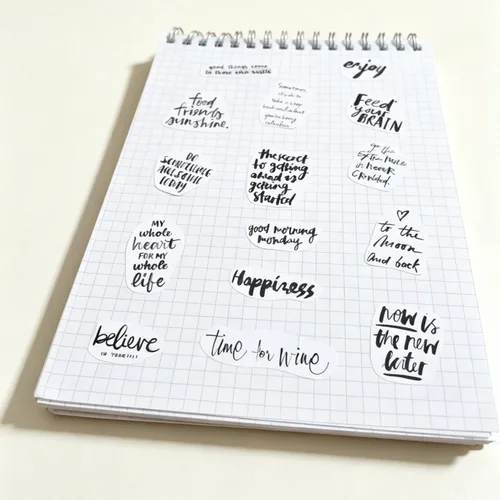 good things come
to those who hustle
enjoy
food
friends
sunshine.
Sometimes
it's ok to
take a step
Feed
your
BRAIN
DO
SOMETHING
AWESOME
TODAY
the secret
to getting
ahead is
getting
started
go the
Extra Mile
it's never
crowded.
MY
whole
heart
FOR MY
whole
life
good morning
monday
to the
Moon
And back
Happiness
believe
IN YOURSELF
time for wine
now is
the new
later